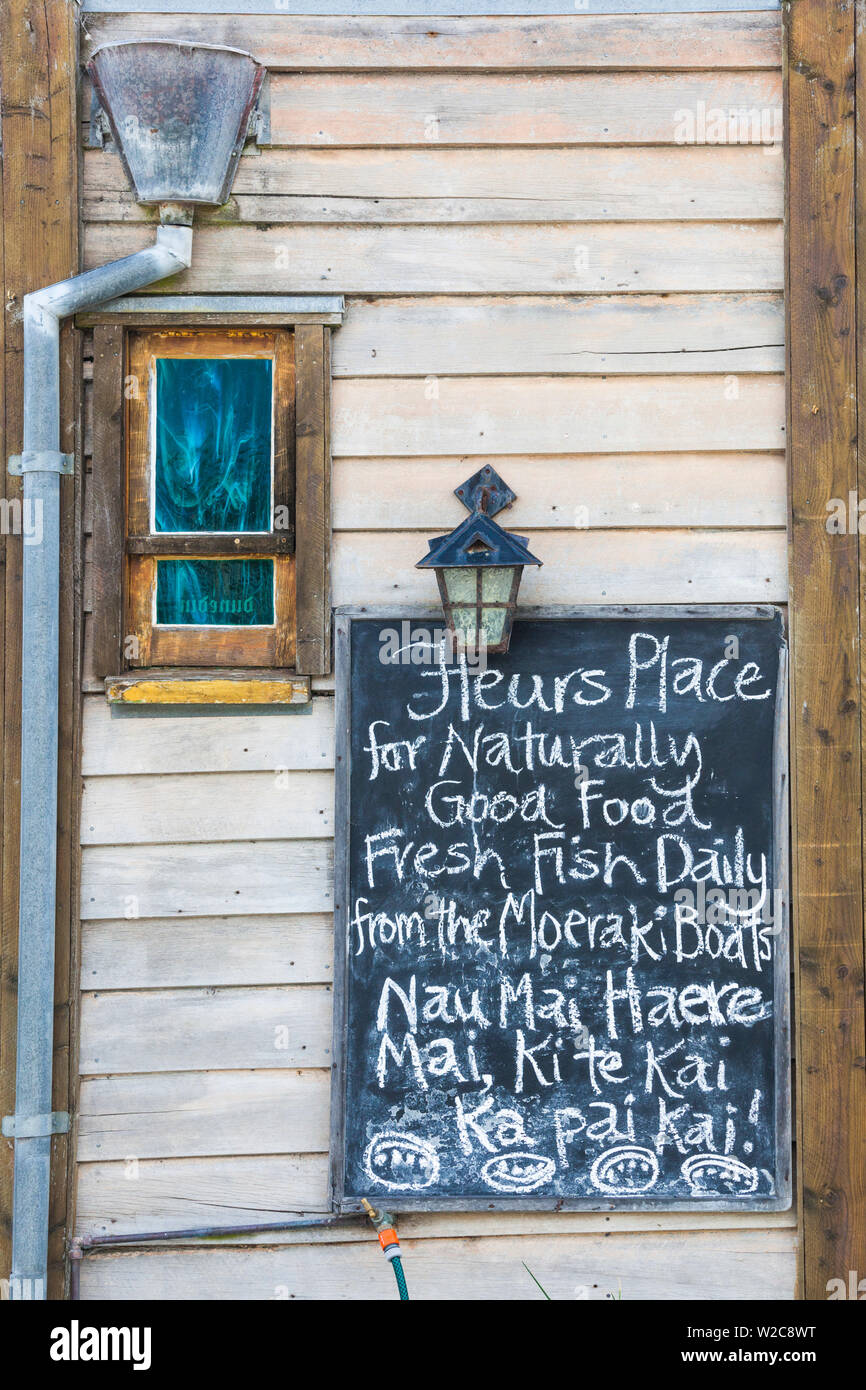 Fleurs Place
for Naturally
Good Food
Fresh Fish Daily
from the Moeraki Boats
Nau Mai Haere
Mai, Ki te Kai
Ka pai kai!
alamy
Image ID: W2C8WT
www.alamy.com